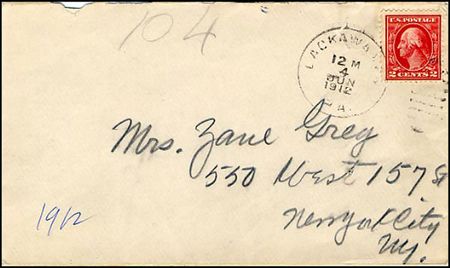 104
LACKAWAXEN
12 M
4
JUN
1912
PA.
U.S. POSTAGE
2 CENTS 2
Mrs. Zane Grey
550 West 157 St
New York City
NY.
1912